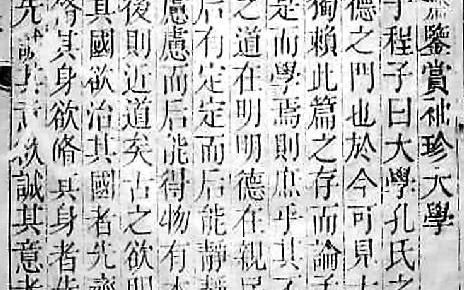 鑒賞袖珍大學
子程子曰大學孔氏之
德之門也於今可見
獨賴此篇之存而論
是而學焉則庶乎其
之道在明明德在親民
后有定定而后能靜靜
慮慮而后能得物有本
後則近道矣古之欲明
其國欲治其國者先齊
脩其身欲脩其身者先
先誠其意欲誠其意者